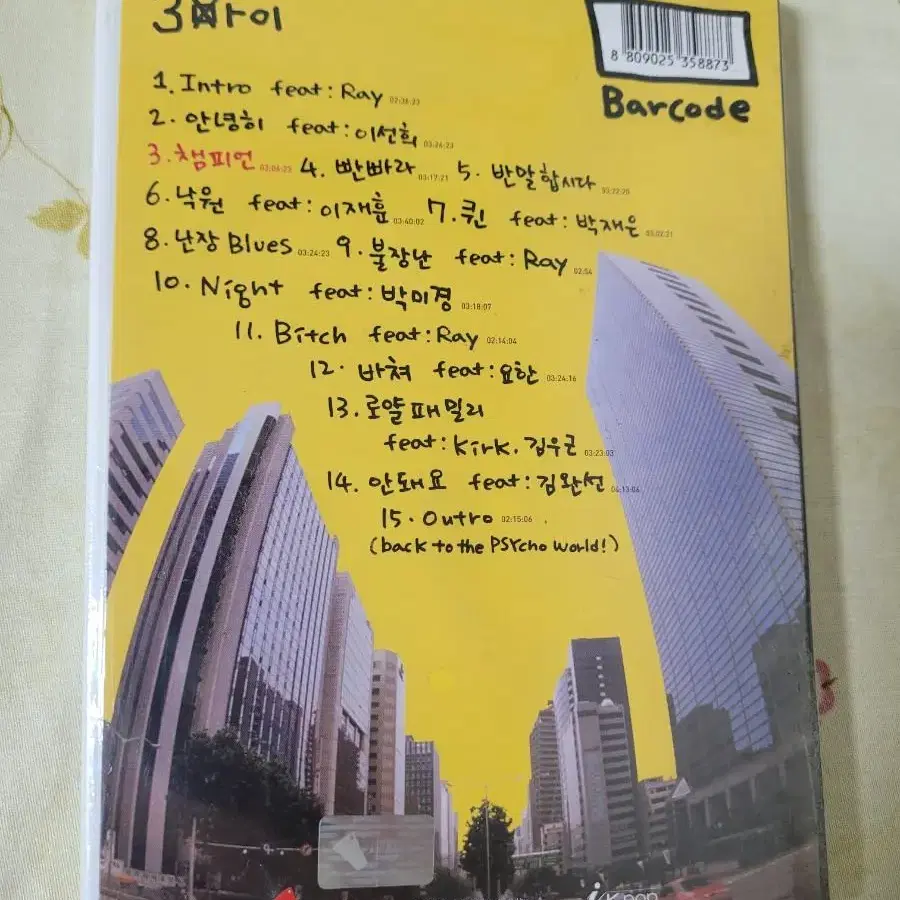 3싸이
8 809025 358873
Barcode
1. Intro feat: Ray 02:38:23
2. 안녕히 feat: 이선희 03:24:23
3. 챔피언 03:06:23 4. 빤빠라 03:17:21 5. 반말합시다 03:22:20
6. 낙원 feat: 이재훈 03:40:02 7. 퀸 feat: 박재은 03:02:21
8. 난장 Blues 03:24:23 9. 불장난 feat: Ray 02:54
10. Night feat: 박미경 03:18:07
11. Bitch feat: Ray 02:14:04
12. 바쳐 feat: 요한 03:24:16
13. 로얄 패밀리
feat: Kirk. 김우근 03:23:03
14. 안돼요 feat: 김완선 04:13:06
15. Outro 02:15:06
(back to the PSYcho world!)